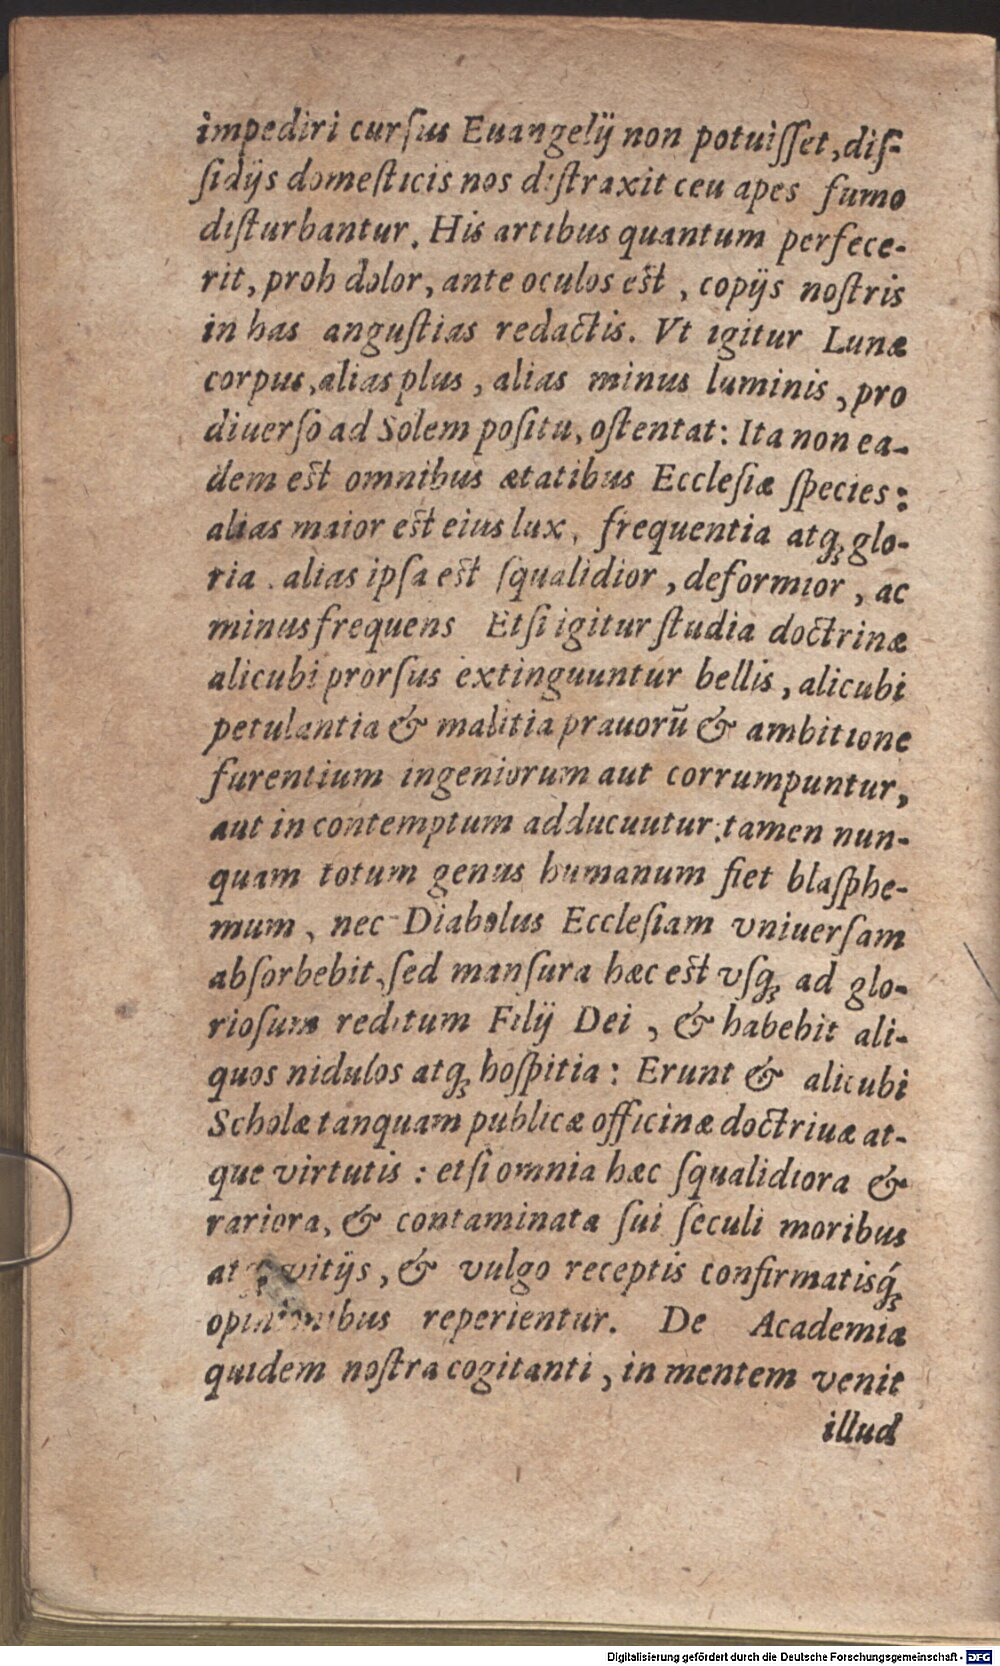 impediri curſus Euangelij non potuiſſet, diſ-
ſidijs domeſticis nos diſtraxit ceu apes fumo
diſturbantur. His artibus quantum perfece-
rit, proh dolor, ante oculos eſt, copijs noſtris
in has anguſtias redactis. Vt igitur Lunæ
corpus, alias plus, alias minus luminis, pro
diuerſo ad Solem poſitu, oſtentat: Ita non ea-
dem eſt omnibus ætatibus Eccleſiæ ſpecies:
alias maior eſt eius lux, frequentia atq́ꝫ glo-
ria. alias ipſa eſt ſqualidior, deformior, ac
minus frequens Etſi igitur ſtudia doctrinæ
alicubi prorſus extinguuntur bellis, alicubi
petulantia & malitia prauorū & ambitione
furentium ingeniorum aut corrumpuntur,
aut in contemptum adducuutur: tamen nun-
quam totum genus humanum fiet blaſphe-
mum, nec Diabolus Eccleſiam vniuerſam
abſorbebit, ſed manſura hæc eſt vſqꝫ ad glo-
rioſum reditum Filij Dei, & habebit ali-
quos nidulos atqꝫ hoſpitia: Erunt & alicubi
Scholæ tanquam publicæ officinæ doctriuæ at-
que virtutis: etſi omnia hæc ſqualidiora &
rariora, & contaminata ſui ſeculi moribus
vitijs, & vulgo receptis confirmatisq́ꝫ
opinionibus reperientur. De Academia
quidem noſtra cogitanti, in mentem venit
illud
Digitalisierung gefördert durch die Deutsche Forschungsgemeinschaft - DFG